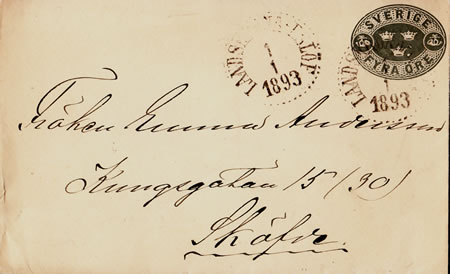 SVERIGE
FYRA ÖRE
1
1
1893
LANDS
1
1893
Fröken Emma Anderson
Kungsgatan 15 (30)
Sköfde.